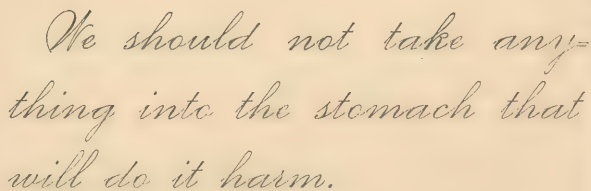 We should not take any=
thing into the stomach that
will do it harm.